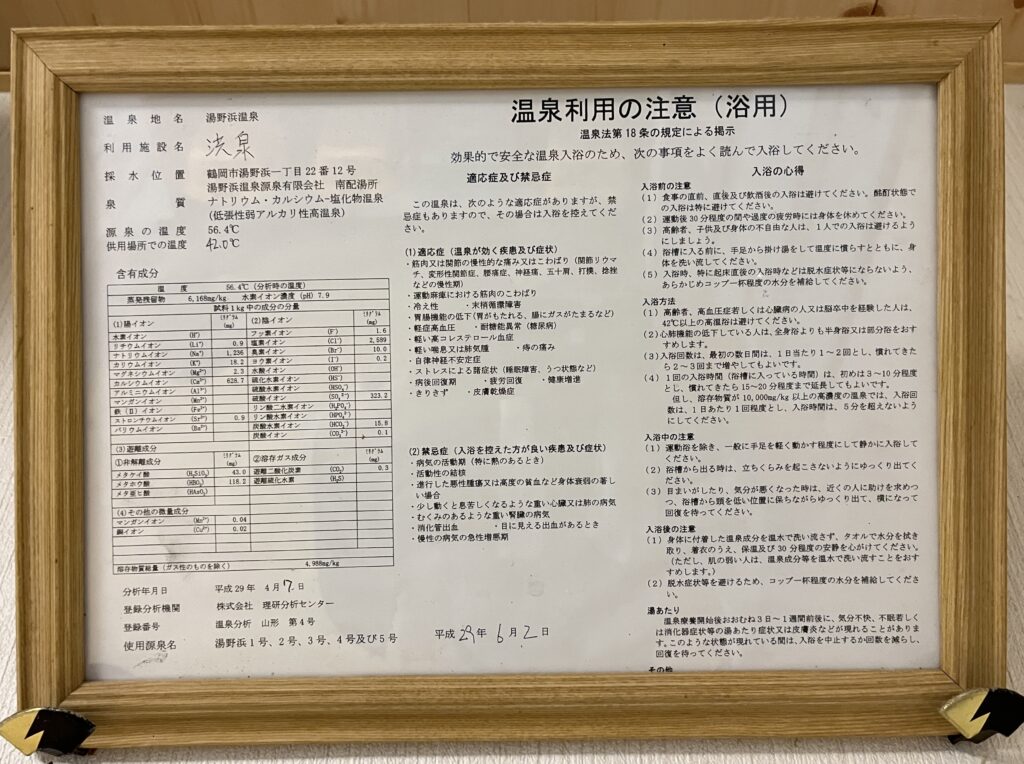 温泉利用の注意（浴用）
温泉法第18条の規定による掲示
効果的で安全な温泉入浴のため、次の事項をよく読んで入浴してください。
温泉地名　湯野浜温泉
利用施設名
採水位置　鶴岡市湯野浜一丁目22番12号
湯野浜温泉源泉有限会社　南配湯所
泉質　ナトリウム・カルシウム-塩化物温泉
（低張性弱アルカリ性高温泉）
源泉の温度　56.4℃
供用場所での温度　42.0℃
含有成分
温度　56.4℃（分析時の温度）
蒸発残留物　6,168mg/kg　水素イオン濃度（pH）7.9
試料1kg中の成分の分量
(1)陽イオン　ﾐﾘｸﾞﾗﾑ(mg)　(2)陰イオン　ﾐﾘｸﾞﾗﾑ(mg)
水素イオン　(H⁺)　フッ素イオン　(F⁻)　1.6
リチウムイオン　(Li⁺)　0.9　塩素イオン　(Cl⁻)　2,589
ナトリウムイオン　(Na⁺)　1,236　臭素イオン　(Br⁻)　10.0
カリウムイオン　(K⁺)　18.2　ヨウ素イオン　(I⁻)　0.2
マグネシウムイオン　(Mg²⁺)　2.3　水酸イオン　(OH⁻)
カルシウムイオン　(Ca²⁺)　628.7　硫化水素イオン　(HS⁻)
アルミニウムイオン　(Al³⁺)　硫酸水素イオン　(HSO₄⁻)
マンガンイオン　(Mn²⁺)　硫酸イオン　(SO₄²⁻)　323.2
鉄（Ⅱ）イオン　(Fe²⁺)　リン酸二水素イオン　(H₂PO₄⁻)
ストロンチウムイオン　(Sr²⁺)　0.9　リン酸水素イオン　(HPO₄²⁻)
バリウムイオン　(Ba²⁺)　炭酸水素イオン　(HCO₃⁻)　15.8
炭酸イオン　(CO₃²⁻)　0.1
(3)遊離成分
①非解離成分　ﾐﾘｸﾞﾗﾑ(mg)　②溶存ガス成分　ﾐﾘｸﾞﾗﾑ(mg)
メタケイ酸　(H₂SiO₃)　43.0　遊離二酸化炭素　(CO₂)　0.3
メタホウ酸　(HBO₂)　118.2　遊離硫化水素　(H₂S)
メタ亜ヒ酸　(HAsO₂)
(4)その他の微量成分
マンガンイオン　(Mn²⁺)　0.04
銅イオン　(Cu²⁺)　0.02
溶存物質総量（ガス性のものを除く）　4,988mg/kg
分析年月日　平成29年　4月7日
登録分析機関　株式会社　理研分析センター
登録番号　温泉分析　山形　第4号
使用源泉名　湯野浜1号、2号、3号、4号及び5号
適応症及び禁忌症
この温泉は、次のような適応症がありますが、禁
忌症もありますので、その場合は入浴を控えてくだ
さい。
(1)適応症（温泉が効く疾患及び症状）
・筋肉又は関節の慢性的な痛み又はこわばり（関節リウマ
チ、変形性関節症、腰痛症、神経痛、五十肩、打撲、捻挫
などの慢性期）
・運動麻痺における筋肉のこわばり
・冷え性　・末梢循環障害
・胃腸機能の低下（胃がもたれる、腸にガスがたまるなど）
・軽症高血圧　・耐糖能異常（糖尿病）
・軽い高コレステロール血症
・軽い喘息又は肺気腫　・痔の痛み
・自律神経不安定症
・ストレスによる諸症状（睡眠障害、うつ状態など）
・病後回復期　・疲労回復　・健康増進
・きりきず　・皮膚乾燥症
(2)禁忌症（入浴を控えた方が良い疾患及び症状）
・病気の活動期（特に熱のあるとき）
・活動性の結核
・進行した悪性腫瘍又は高度の貧血など身体衰弱の著し
い場合
・少し動くと息苦しくなるような重い心臓又は肺の病気
・むくみのあるような重い腎臓の病気
・消化管出血　・目に見える出血があるとき
・慢性の病気の急性増悪期
平成29年6月2日
入浴の心得
入浴前の注意
(1) 食事の直前、直後及び飲酒後の入浴は避けてください。酩酊状態で
の入浴は特に避けてください。
(2) 運動後30分程度の間や過度の疲労時には身体を休めてください。
(3) 高齢者、子供及び身体の不自由な人は、1人での入浴は避けるよう
にしましょう。
(4) 浴槽に入る前に、手足から掛け湯をして温度に慣らすとともに、身
体を洗い流してください。
(5) 入浴時、特に起床直後の入浴時などは脱水症状等にならないよう、
あらかじめコップ一杯程度の水分を補給してください。
入浴方法
(1) 高齢者、高血圧症若しくは心臓病の人又は脳卒中を経験した人は、
42℃以上の高温浴は避けてください。
(2) 心肺機能の低下している人は、全身浴よりも半身浴又は部分浴をおす
すめします。
(3) 入浴回数は、最初の数日間は、1日当たり1～2回とし、慣れてきた
ら2～3回まで増やしてもよいです。
(4) 1回の入浴時間（浴槽に入っている時間）は、初めは3～10分程度
とし、慣れてきたら15～20分程度まで延長してもよいです。
但し、溶存物質が10,000mg/kg以上の高濃度の温泉では、入浴回
数は、1日あたり1回程度とし、入浴時間は、5分を超えないように
してください。
入浴中の注意
(1) 運動浴を除き、一般に手足を軽く動かす程度にして静かに入浴して
ください。
(2) 浴槽から出る時は、立ちくらみを起こさないようにゆっくり出てく
ださい。
(3) 目まいがしたり、気分が悪くなった時は、近くの人に助けを求めつ
つ、浴槽から頭を低い位置に保ちながらゆっくり出て、横になって
回復を待ってください。
入浴後の注意
(1) 身体に付着した温泉成分を温水で洗い流さず、タオルで水分を拭き
取り、着衣のうえ、保温及び30分程度の安静を心がけてください。
（ただし、肌の弱い人は、温泉成分等を温水で洗い流すことをおす
すめします。）
(2) 脱水症状等を避けるため、コップ一杯程度の水分を補給してくださ
い。
湯あたり
温泉療養開始後おおむね3日～1週間前後に、気分不快、不眠若しく
は消化器症状等の湯あたり症状又は皮膚炎などが現れることがありま
す。このような状態が現れている間は、入浴を中止するか回数を減らし、
回復を待ってください。
その他